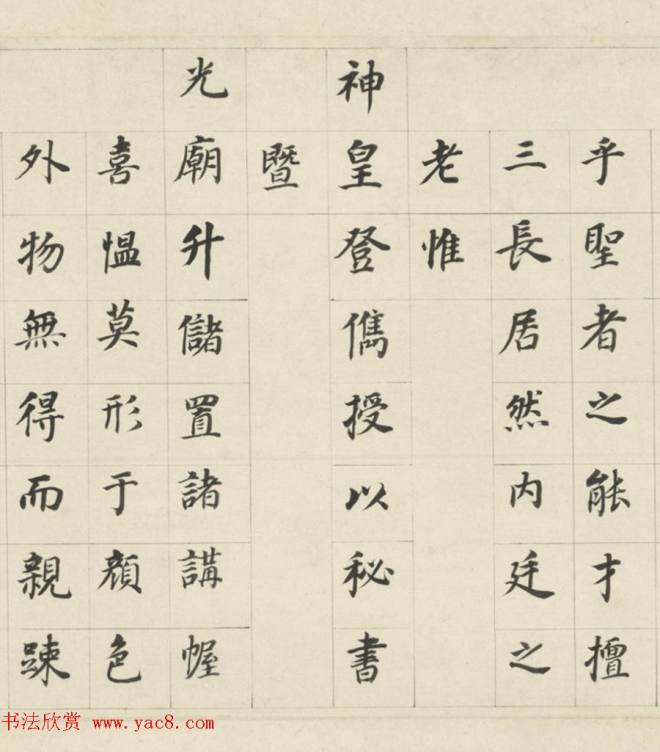 乎聖者之能才擅
三長居然内廷之
老惟
神皇登儁授以秘書
暨
光廟升儲置諸講幄
喜慍莫形于顔色
外物無得而親踈
书法欣赏 www.yac8.com